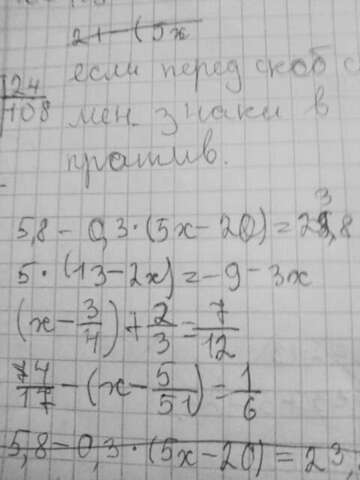 21 - (5x
если перед скоб с
124/108
мен. знаки в
против.
5,8 - 0,3 · (5x - 20) = 23,8
5 · (13 - 2x) = -9 - 3x
(x - 3/4) + 2/3 = 7/12
74/17 - (x - 5/51) = 1/6
5,8 - 0,3 · (5x - 20) = 23,